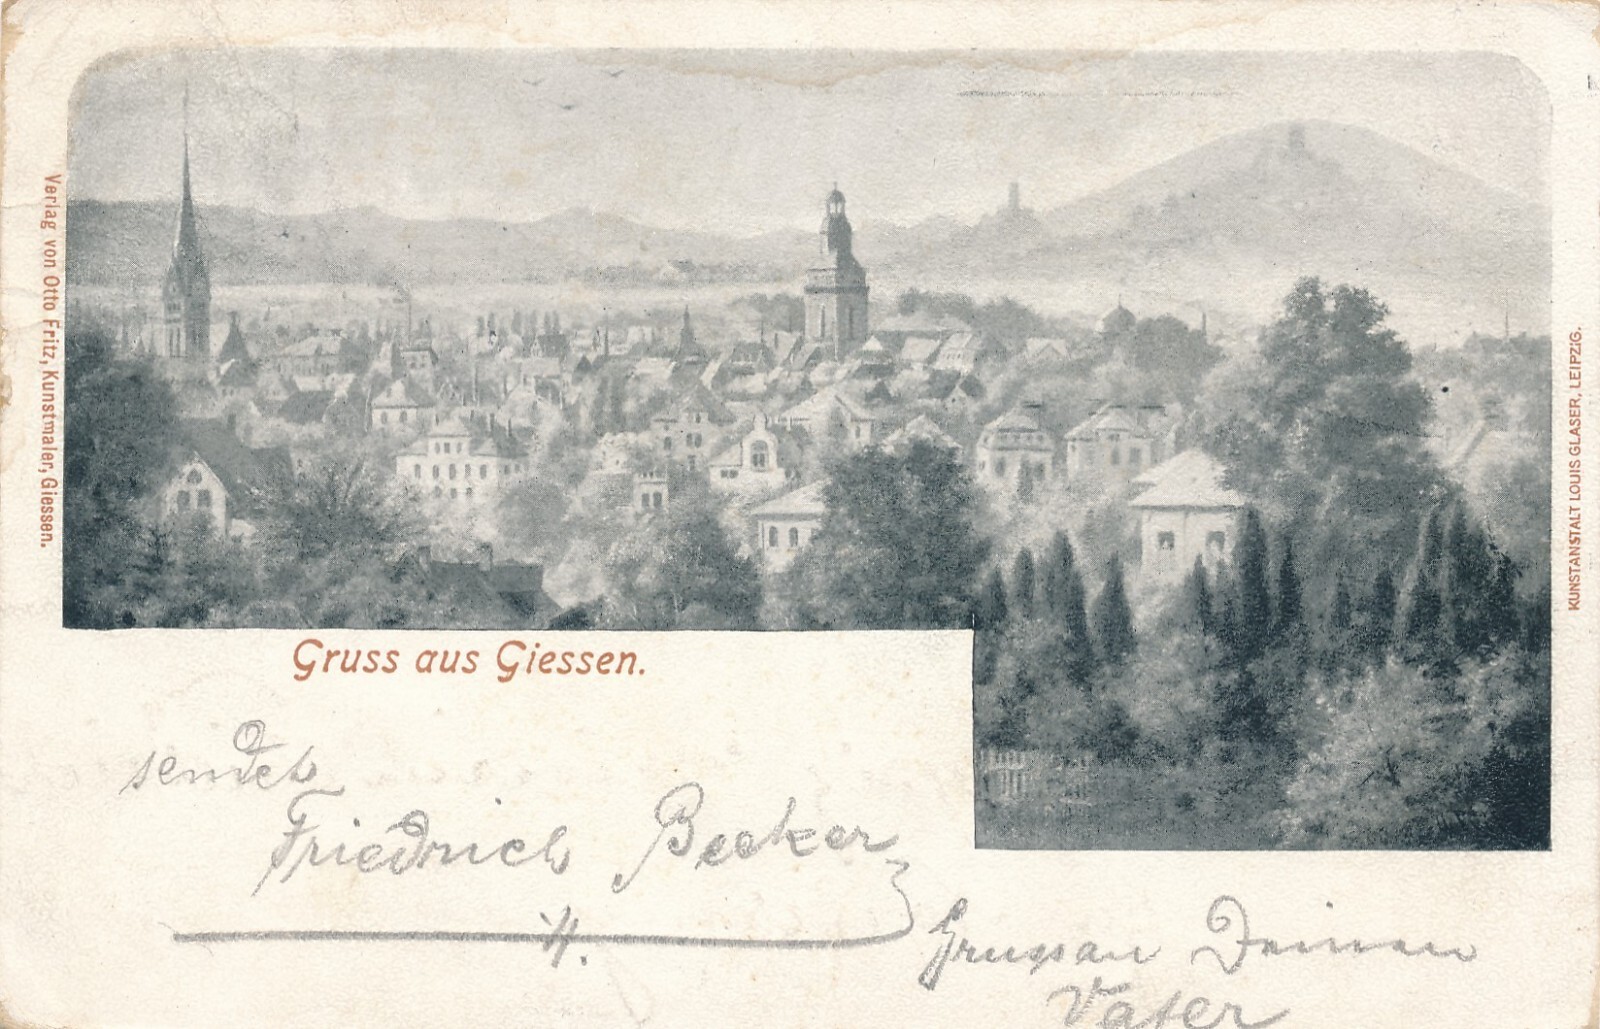 Verlag von Otto Fritz, Kunstmaler, Giessen.
KUNSTANSTALT LOUIS GLASER, LEIPZIG.
Gruss aus Giessen.
sendet
Friedrich Becker
Deinen
Vater